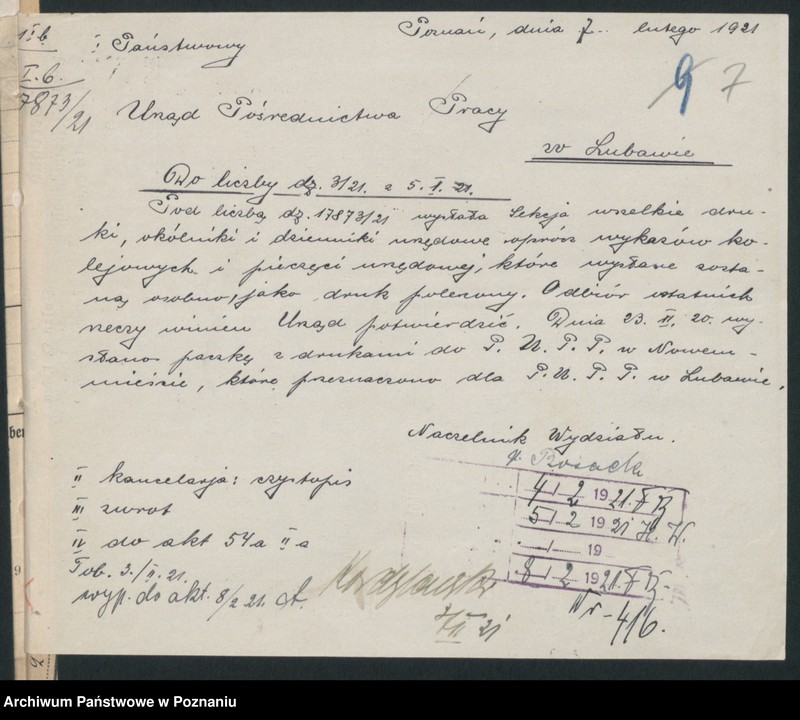 Poznań, dnia 7. lutego 1921
I b.
I. Państwowy
I. b.
17873/21
9 7
Urząd Pośrednictwa Pracy
w Lubawie
Do liczby dz. 3/21. z 5. I. 21.
Pod liczbą dz. 17873/21 wysłała Sekcja wszelkie dru-
ki, okólniki i dzienniki urzędowe oprócz wykazów ko-
lejowych i pieczęci urzędowej, które wysłane zosta-
ną osobno, jako druk polecony. Odbiór ostatnich
rzeczy winien Urząd potwierdzić. Dnia 23. II. 20. wy-
słano paczkę z drukami do P. U. P. P. w Nowem-
mieście, które przeznaczono dla P. U. P. P. w Lubawie.
Naczelnik Wydziału.
II kancelarja: czystopis
III zwrot
IV do akt 54a II a
Pob. 3./II. 21.
wyp. do akt. 8/2 21.
4/2 1921.
5/2 1921
19
8/2 1921.
7/II 21
Nr - 416.
ber
9
Archiwum Państwowe w Poznaniu